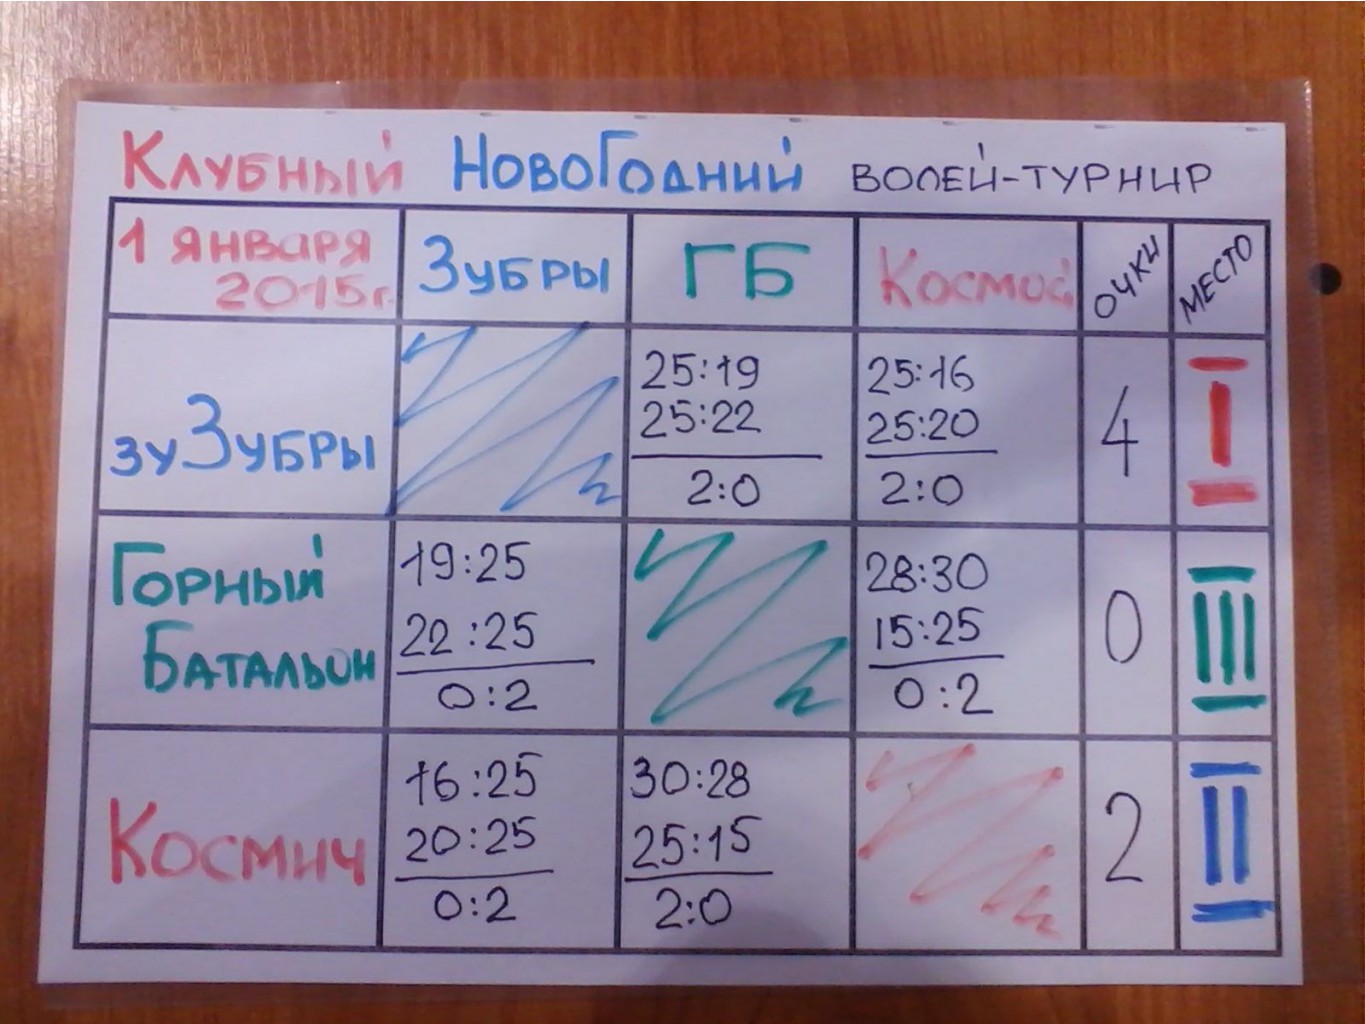 Клубный НовоГодний ВОЛЕЙ-ТУРНИР
1 января 2015г. Зубры ГБ Космос ОЧКИ МЕСТО
зуЗубры 25:19 25:22 2:0 25:16 25:20 2:0 4 I
Горный Батальон 19:25 22:25 0:2 28:30 15:25 0:2 0 III
Космич 16:25 20:25 0:2 30:28 25:15 2:0 2 II